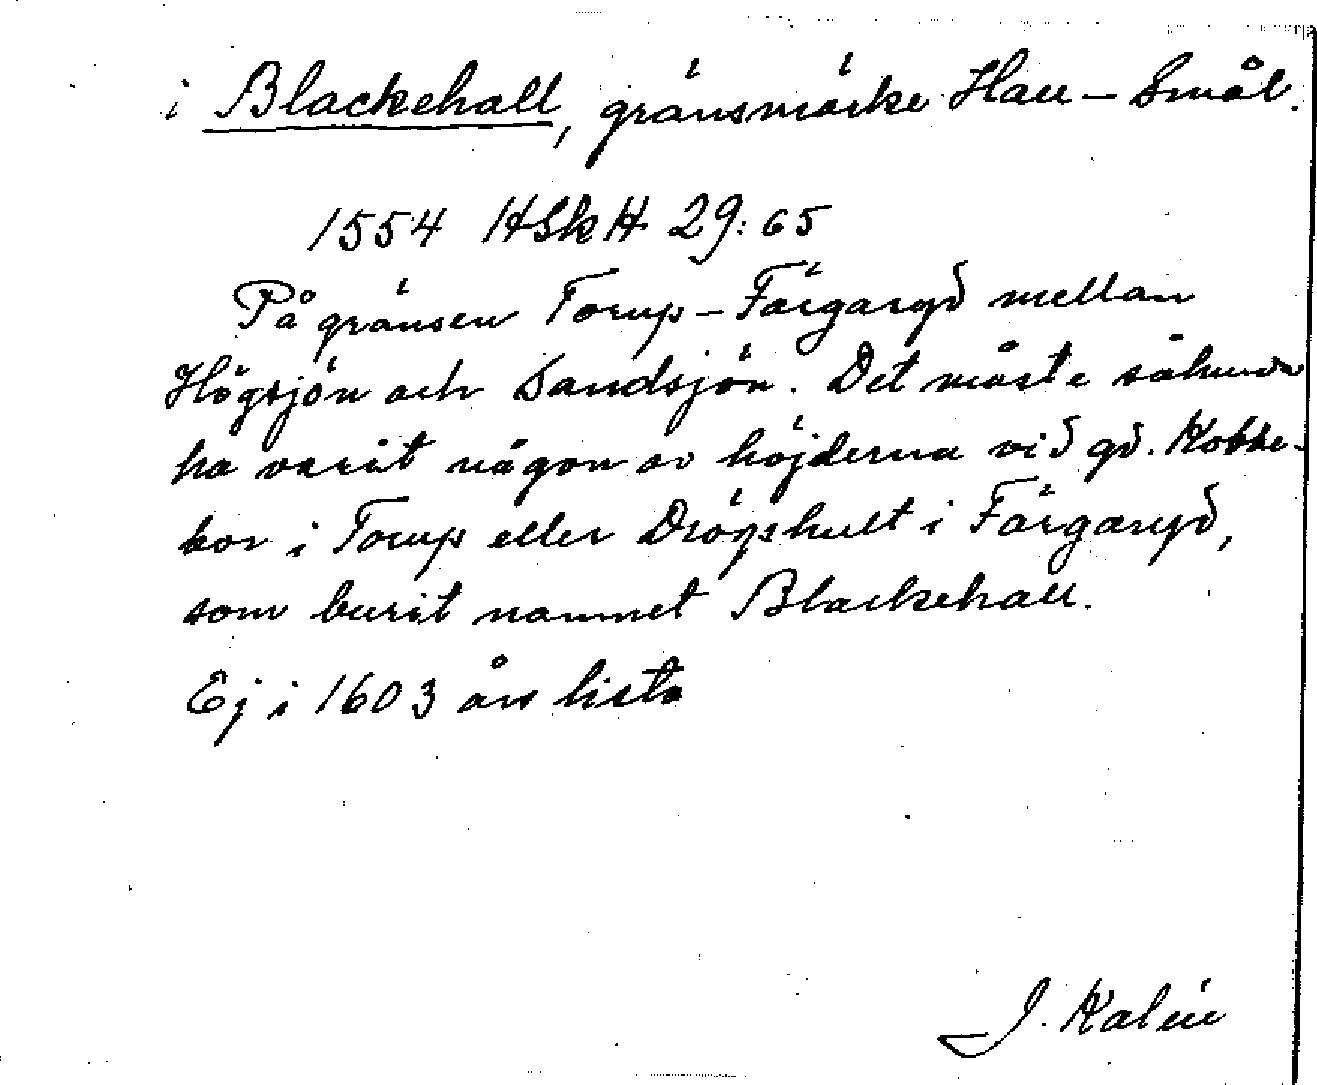 i Blackehall, gränsmärke Hall – Smål.
1554 HSkH 29:65
På gränsen Torup – Färgaryd mellan
Högsjön och Sandsjön. Det måste sålunda
ha varit någon av höjderna vid gd. Kobbe-
bor i Torup eller Drögshult i Färgaryd,
som burit namnet Blackehall.
Ej i 1603 års lista
J. Kalén